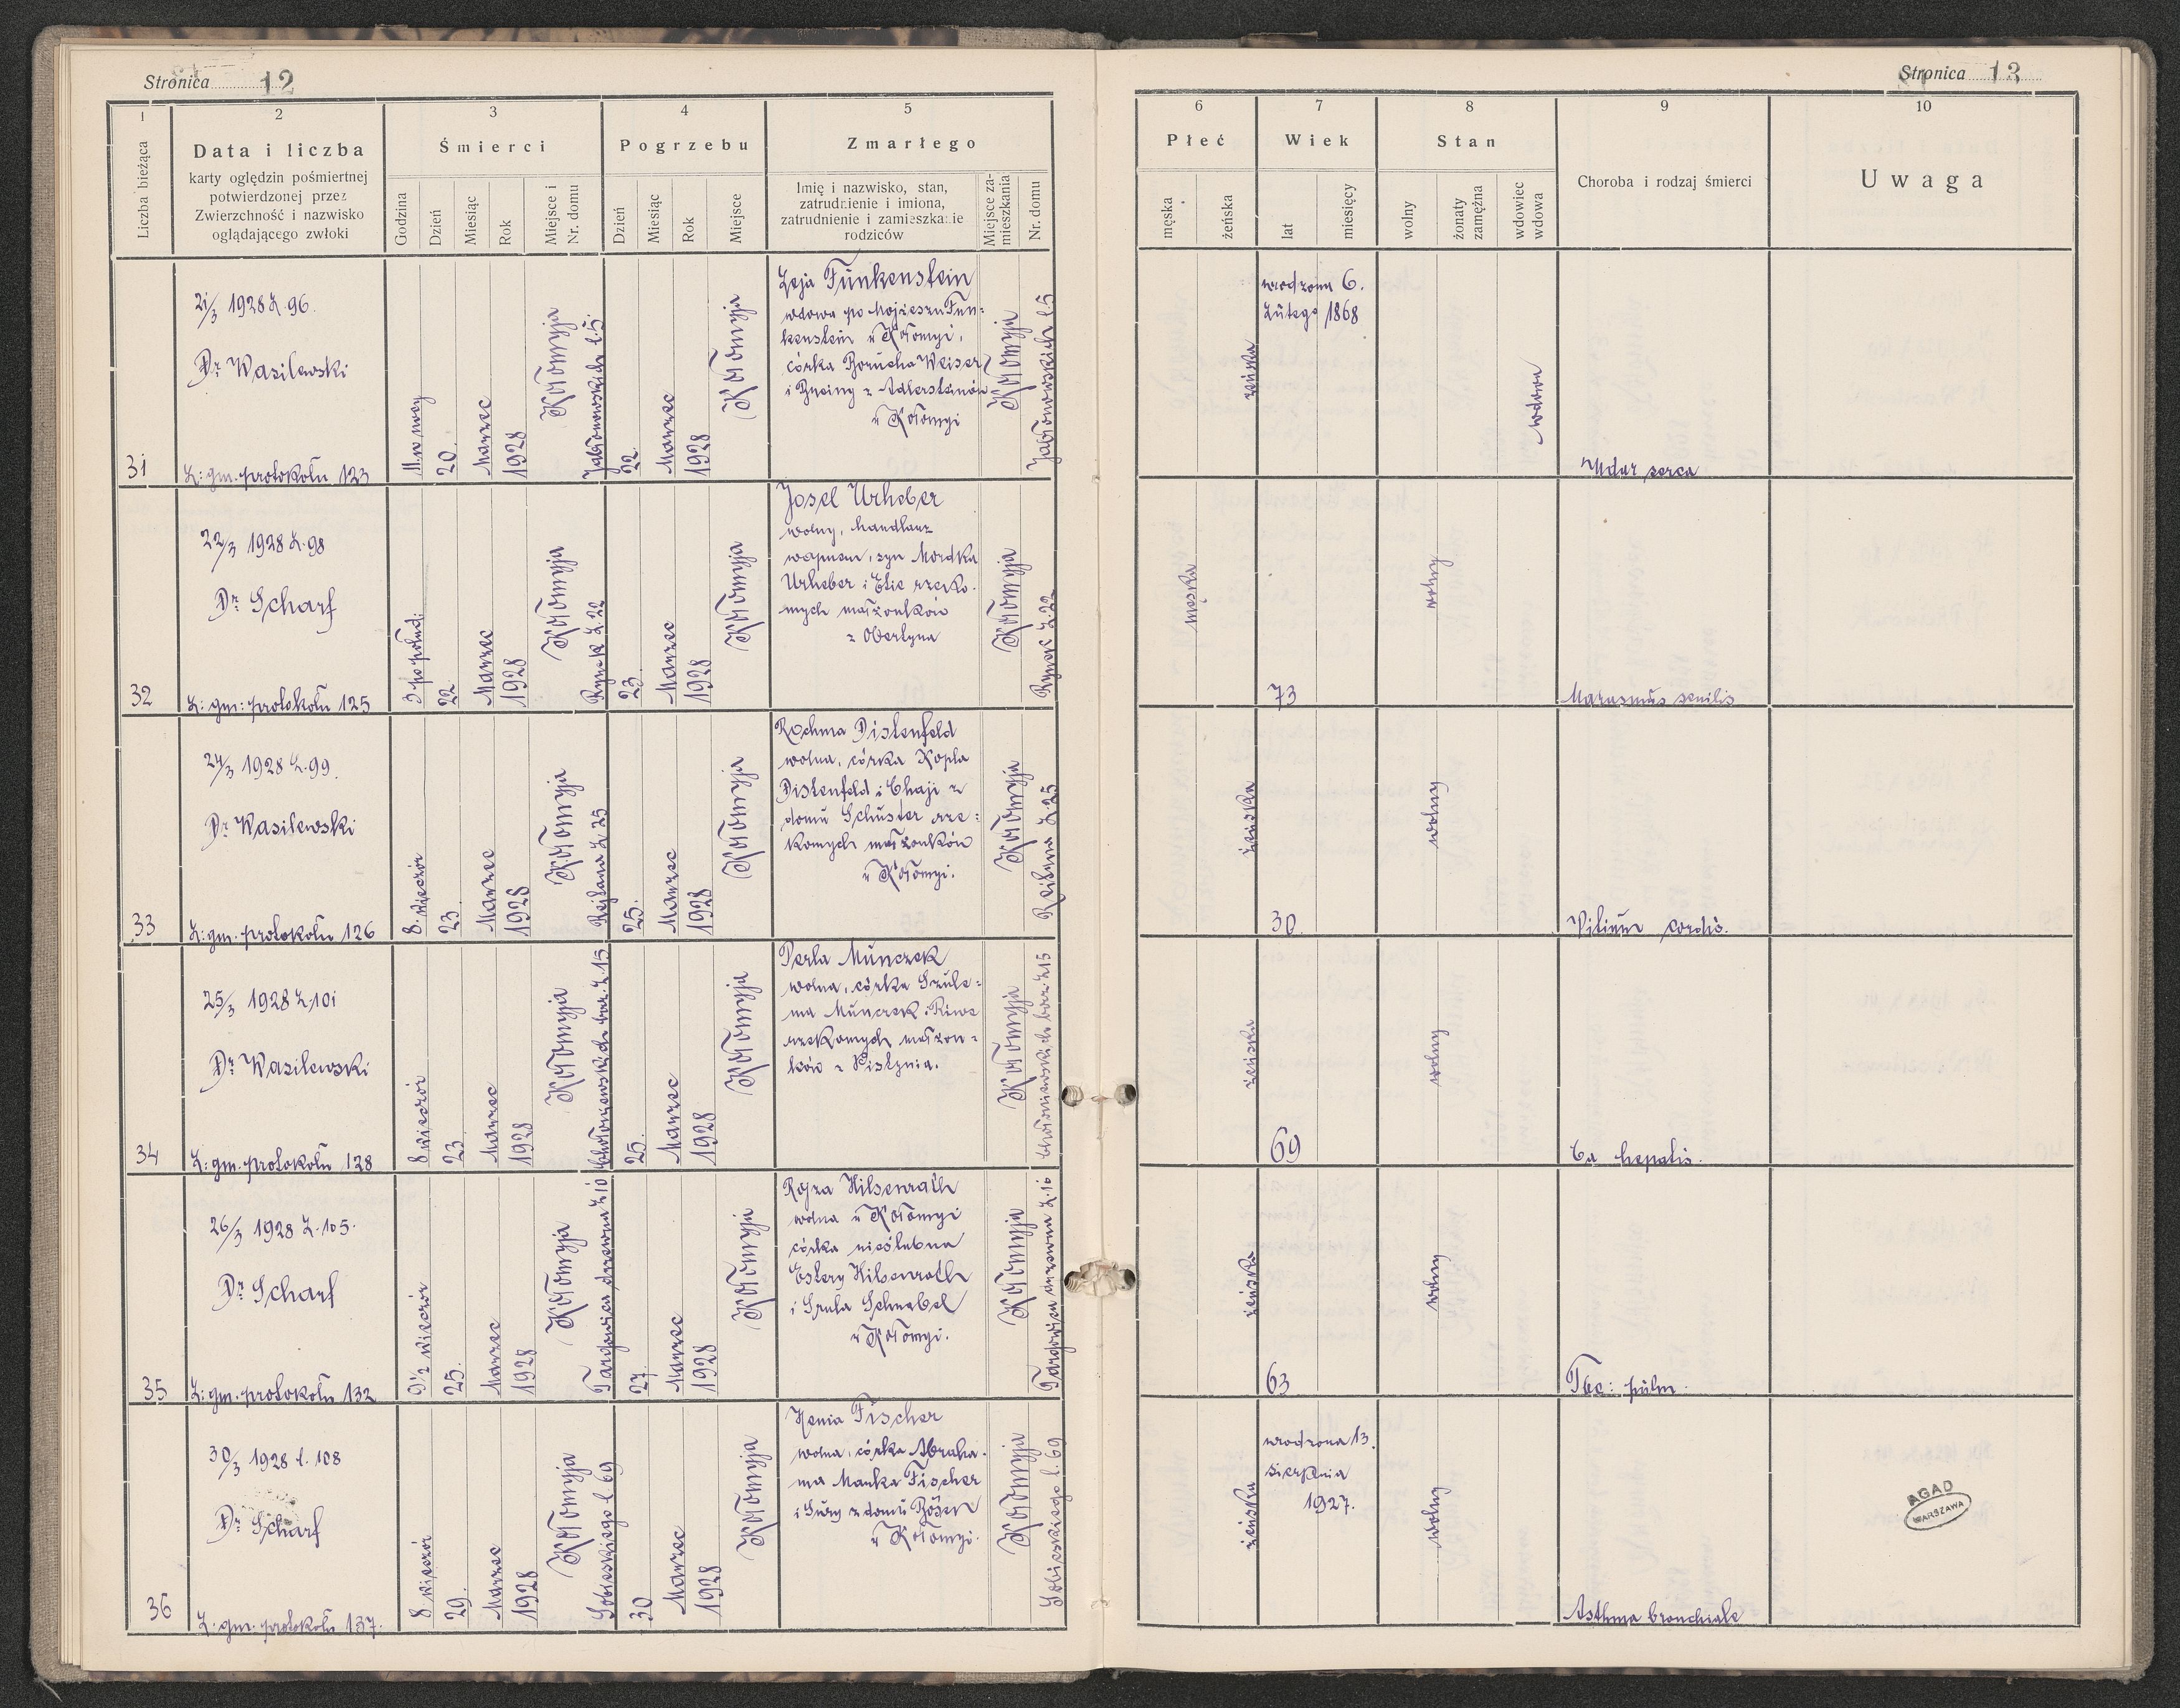 Stronica 12
1
2
3
4
5
Liczba bieżąca
Data i liczba
karty oględzin pośmiertnej
potwierdzonej przez
Zwierzchność i nazwisko
oglądającego zwłoki
Śmierci
Godzina
Dzień
Miesiąc
Rok
Miejsce i
Nr. domu
Pogrzebu
Dzień
Miesiąc
Rok
Miejsce
Zmarłego
Imię i nazwisko, stan,
zatrudnienie i imiona,
zatrudnienie i zamieszkanie
rodziców
Miejsce za-
mieszkania
Nr. domu
31
21/3 1928 L. 96.
Dr Wasilewski
L: gm. protokołu 123
11. w nocy
20.
Marzec
1928
Kołomyja
Jabłonowskich l. 5.
22.
Marzec
1928
Kołomyja
Leja Funkenstein
wdowa po Mojżeszu Fun-
kenstein w Kołomyi,
córka Borucha Weiser
i Bneiny z Adlersteinów
w Kołomyi
Kołomyja
Jabłonowskich l. 5
32
22/3 1928 L. 98
Dr Scharf
L: gm: protokołu 125
3 po połud:
22.
Marzec
1928
Kołomyja
Rynek L. 22
23.
Marzec
1928
Kołomyja
Josel Urheber
wolny, handlarz
wapnem, syn Mordka
Urheber i Etie rzeko-
mych małżonków
z Obertyna
Kołomyja
Rynek L. 22
33
24/3 1928 L. 99.
Dr Wasilewski
L: gm. protokołu 126
8. wieczór
23.
Marzec
1928
Kołomyja
Rejtana L. 25
25.
Marzec
1928
Kołomyja
Rochma Distenfeld
wolna, córka Kopla
Distenfeld i Chaji z
domu Schuster rze-
komych małżonków
w Kołomyi.
Kołomyja
Rejtana L. 25
34
25/3 1928 L. 101
Dr Wasilewski
L: gm. protokołu 128
8 wieczór
23.
Marzec
1928
Kołomyja
bar. L. 15
25.
Marzec
1928
Kołomyja
Perla Münczek
wolna, córka Szule-
ma Münczek i Riwe
rzekomych małżon-
ków z Pistynia.
Kołomyja
bar. L. 15
35
26/3 1928 L. 105.
Dr Scharf
L: gm. protokołu 132
9 1/2 wieczór
25.
Marzec
1928
Kołomyja
Targowica drzewna L. 10
27.
Marzec
1928
Kołomyja
Rojza Hilsenrath
wolna w Kołomyi
córka nieślubna
Estery Hilsenrath
i Srula Schnabel
w Kołomyi.
Kołomyja
Targowica drzewna L. 10
36
30/3 1928 l. 108
Dr Scharf
L: gm. protokołu 137.
8 wieczór
29.
Marzec
1928
Kołomyja
Sobieskiego l. 69
30
Marzec
1928
Kołomyja
Henia Fischer
wolna, córka Abraha-
ma Manka Fischer
i Sury z domu Rosen
w Kołomyi.
Kołomyja
Sobieskiego l. 69
Stronica 13
6
7
8
9
10
Płeć
męska
żeńska
Wiek
lat
miesięcy
Stan
wolny
żonaty
zamężna
wdowiec
wdowa
Choroba i rodzaj śmierci
Uwaga
żeńska
urodzona 6.
Lutego 1868
wdowa
Udar serca
męska
73
wolny
Marasmus senilis
żeńska
30
wolny
Vitium cordis.
żeńska
69
wolny
Ca hepatis.
żeńska
63
wolny
Tbc: pulm.
żeńska
urodzona 13.
sierpnia
1927.
wolny
Asthma bronchiale
AGAD
WARSZAWA